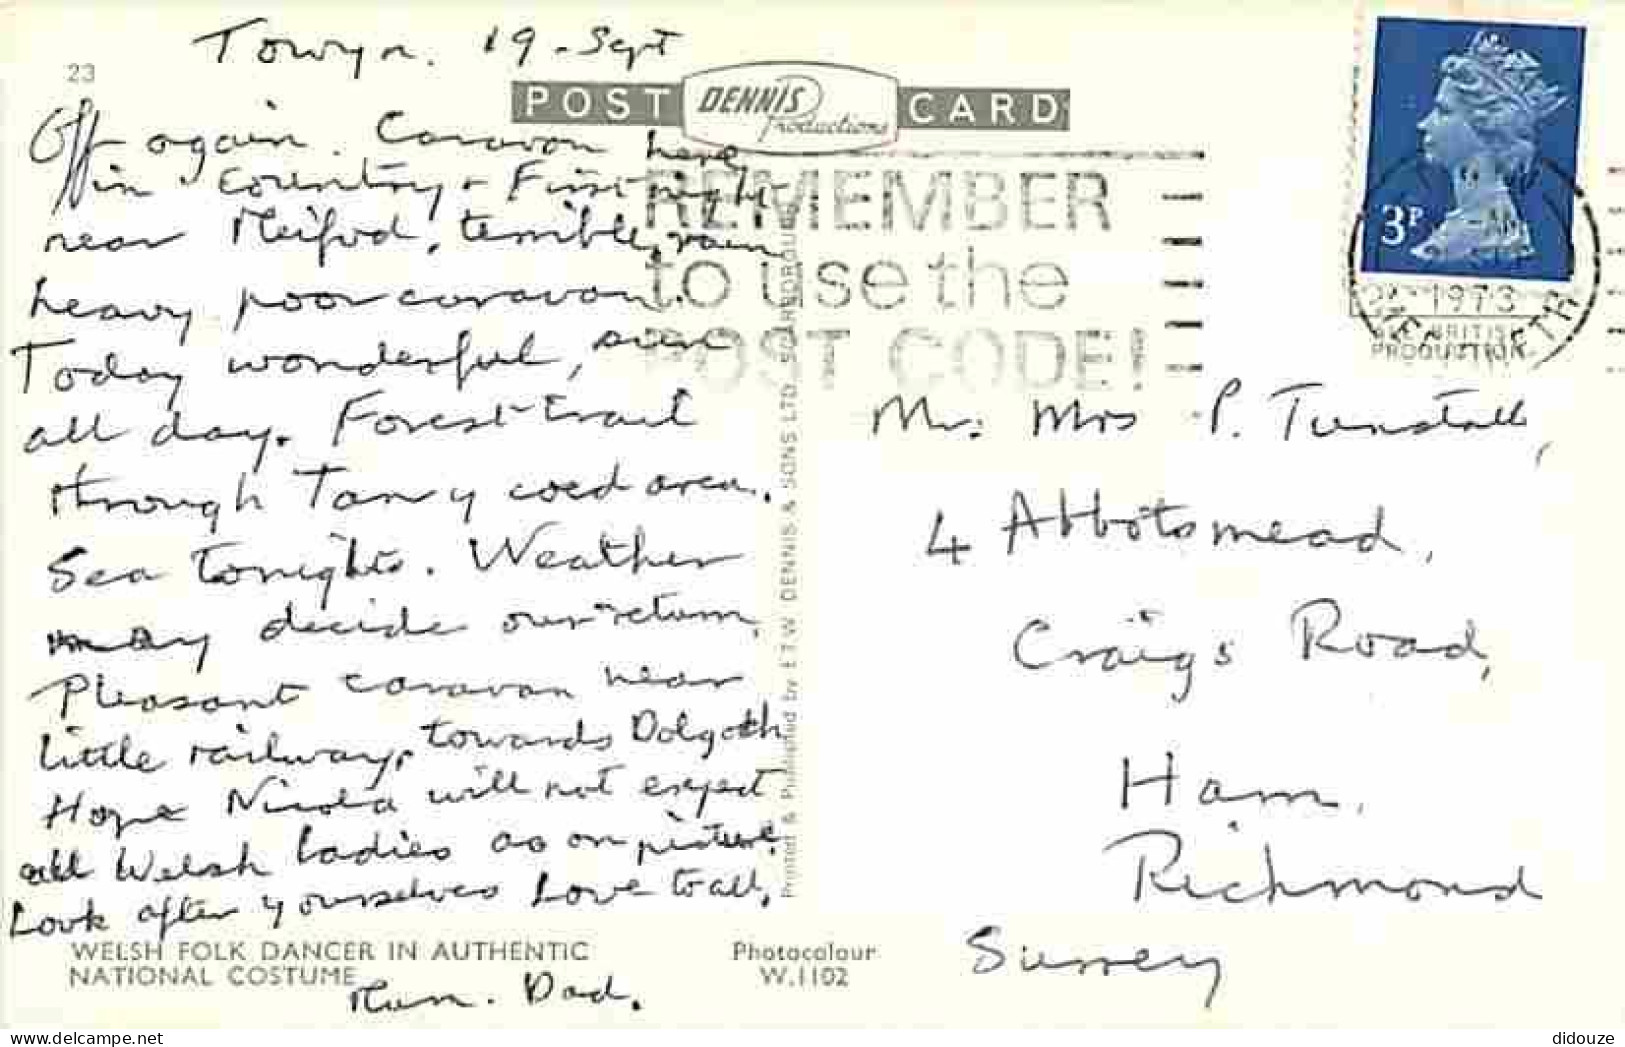 23
Towyn. 19-Sept
POST DENNIS Productions CARD
Off again. Caravan here
in country - First night
near Meifod, terrible, rain
heavy poor caravan.
Today wonderful, sun
all day. Forest trail
through Tan y coed area.
Sea tonight. Weather
may decide our return.
Pleasant caravan near
little railway, towards Dolgoch
Hope Nicola will not expect
all Welsh ladies as on picture.
Look after yourselves Love to all,
Mum. Dad.
WELSH FOLK DANCER IN AUTHENTIC
NATIONAL COSTUME
Photocolour
W.1102
Printed & Published by E T W DENNIS & SONS LTD SCARBOROUGH
REMEMBER
to use the
POST CODE!
3P
1973
BRITISH
PRODUCTION
Mr. Mrs P. Tunstall,
4 Abbotsmead,
Craigs Road,
Ham,
Richmond
Surrey
didouze